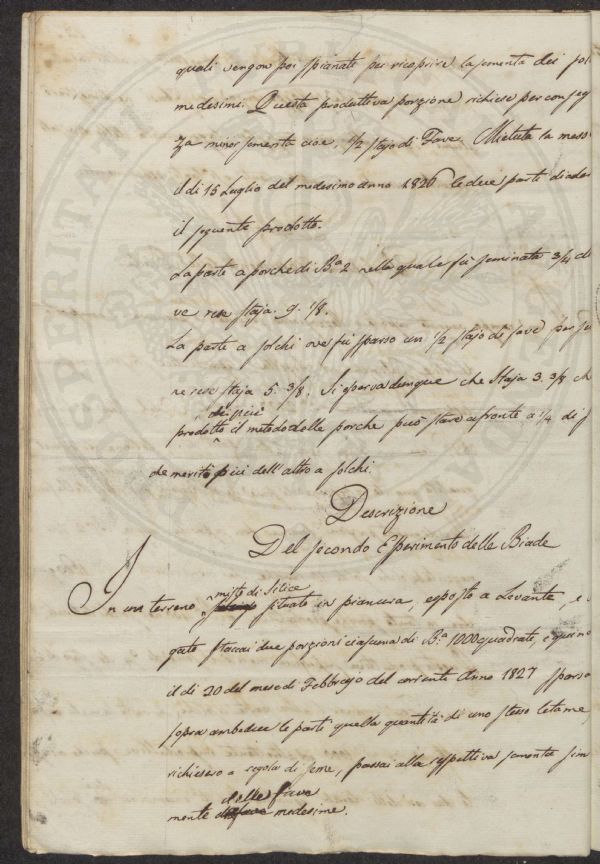 quali vengon poi spianate per ricoprire la sementa dei sol
medesimi. Questa produttiva porzione richiese per conseg
za minor sementa cioè 1/2 stajo di Fave. Mietuta la mess
il di 15 Luglio del medesimo anno 1826 le due parti
il seguente prodotto.
La parte a porche di B.a 2 nella quale fù seminata 3/4 di
ve rese staja. 9. 1/8.
La parte a solchi ove fù sparso un 1/2 stajo di fave per
ne rese staja 5. 3/8. Si osserva dunque che Staja 3. 3/8 ch
di più
prodotto il metodo delle porche può stare a fronte a 1/4 di
che meritò più dell'altro a solchi.
Descrizione
Del secondo Esperimento delle Biade
misto di Silice
In un terreno situato in pianura, esposto a Levante, e
gate staccai due porzioni ciascuna di B.a 1000 quadrate, e quin
il di 20 del mese di Febbrajo del corrente Anno 1827 sparso
sopra ambedue le parti quella quantità di uno stesso letame,
richiesero a regola di seme, passai alla rispettiva sementa sim
delle fave
mente medesime.